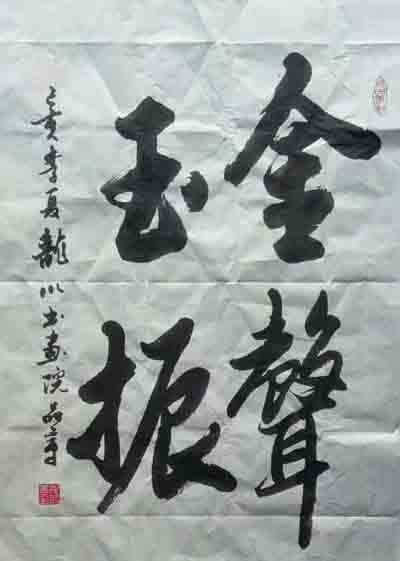 金聲
玉振
亥季夏龍川書畫院